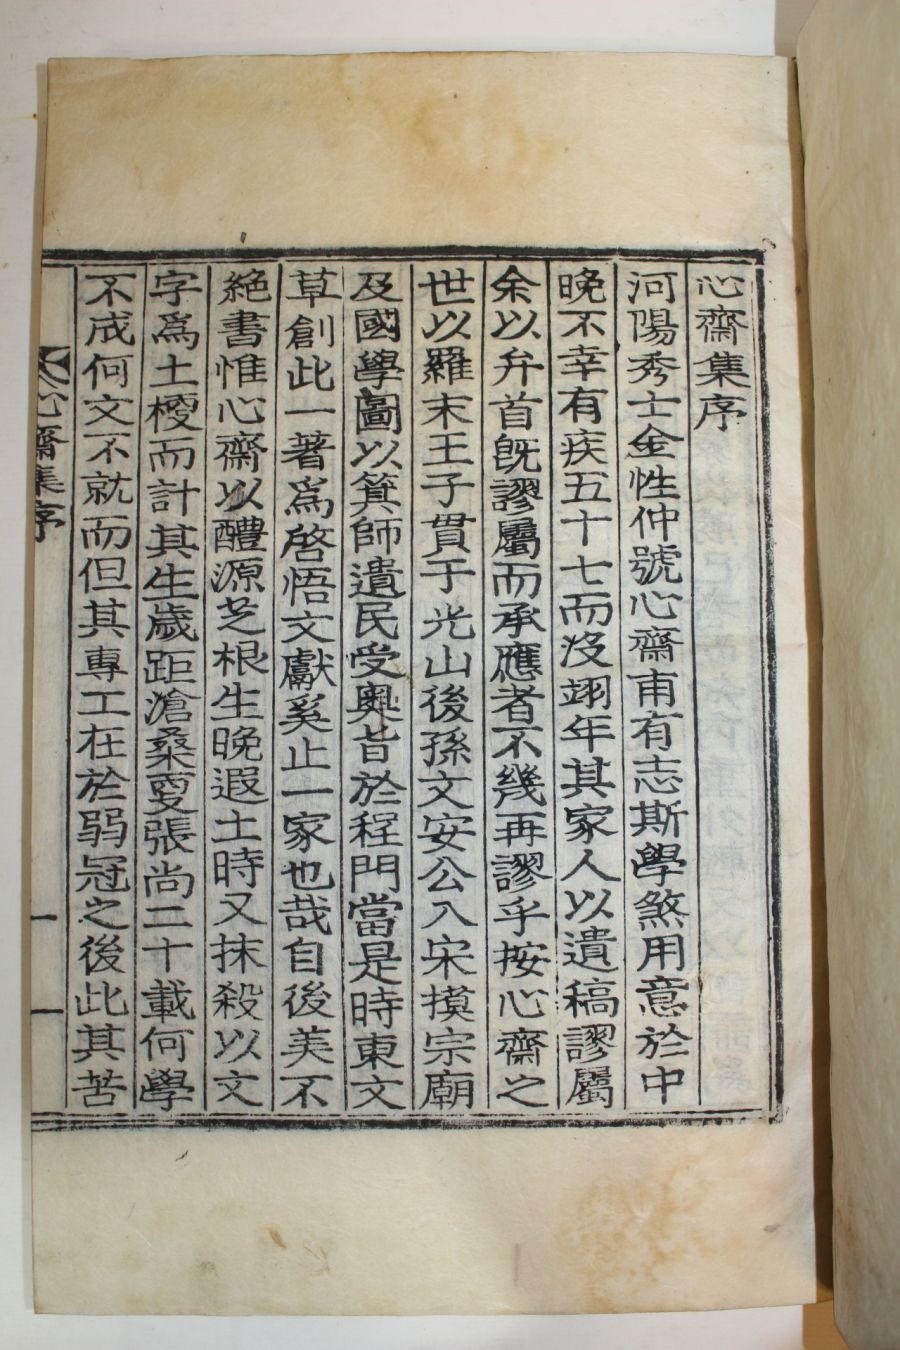 心齋集序
河陽秀士金性仲號心齋甫有志斯學煞用意於中
晚不幸有疾五十七而沒翊年其家人以遺稿謬屬
余以弁首旣謬屬而承應者不幾再謬乎按心齋之
世以羅末王子貫于光山後孫文安公入宋摸宗廟
及國學圖以箕師遺民受奧旨於程門當是時東文
草創此一著爲啓悟文獻奚止一家也哉自後美不
絶書惟心齋以醴源芝根生晚遐土時又抹殺以文
字爲土梗而計其生歲距滄桑更張尚二十載何學
不成何文不就而但其專工在於弱冠之後此其苦
心齋集序
一